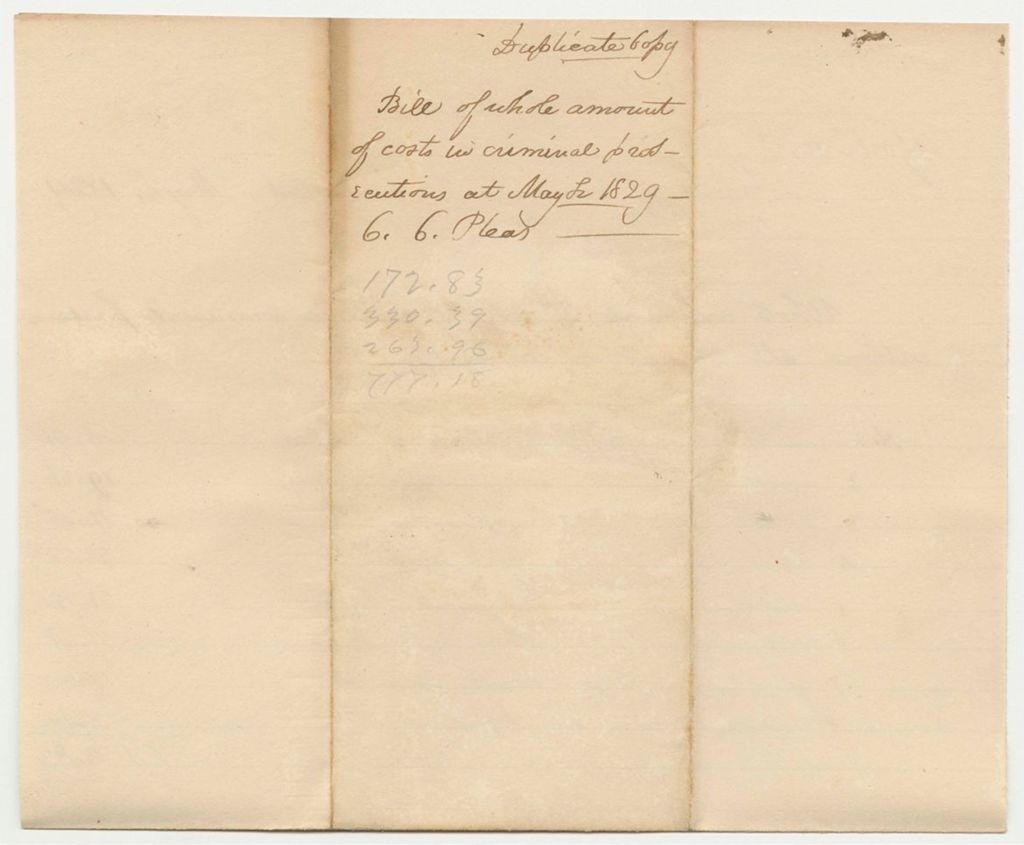 Duplicate Copy
Bill of whole amount
of costs in criminal pros-
ecutions at May 1829 —
C. C. Pleas
172.83
330.39
263.96
777.18